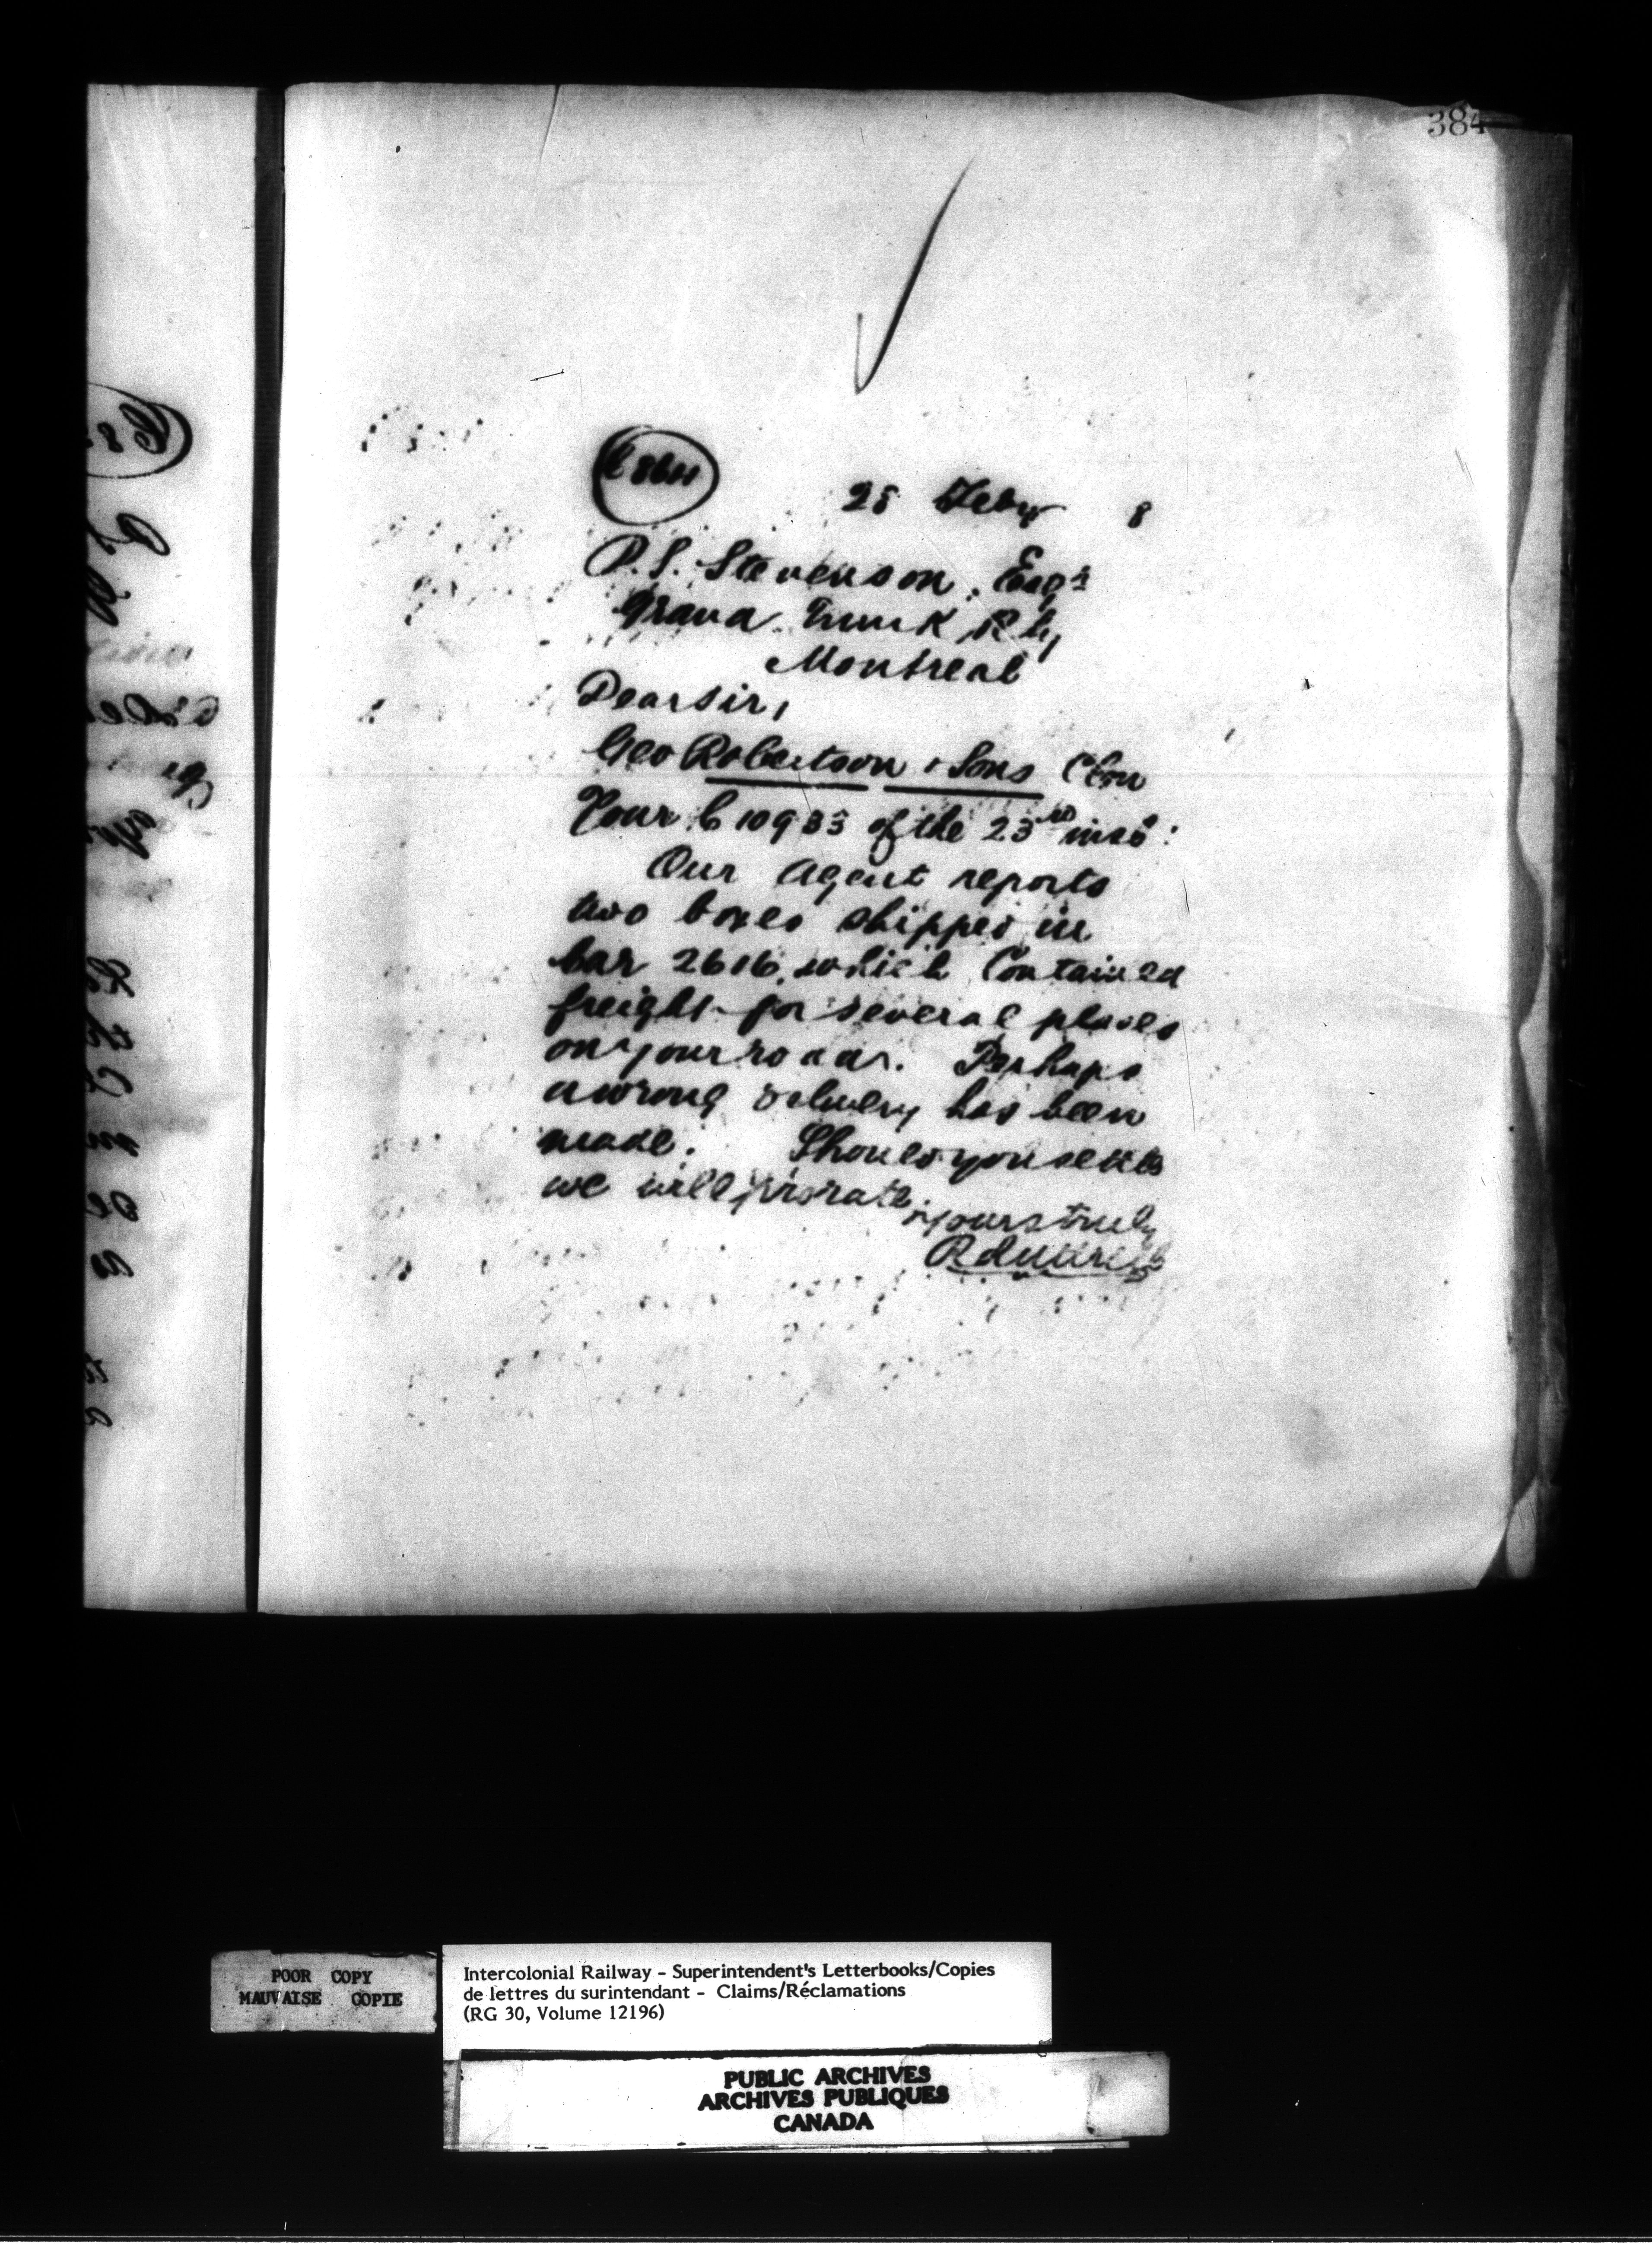 384
25 Feby 8
P. S. Stevenson, Esqr
Grand Trunk Rly
Montreal
Dear Sir,
Geo Robertson & Sons Clm
Your C 10933 of the 23rd inst:
Our Agent reports
two boxes shipped in
Car 2616 which Contained
freight for several places
on your road. Perhaps
a wrong delivery has been
made. Should you settle
we will prorate.
Yours truly
POOR COPY
MAUVAISE COPIE
Intercolonial Railway - Superintendent's Letterbooks/Copies
de lettres du surintendant - Claims/Réclamations
(RG 30, Volume 12196)
PUBLIC ARCHIVES
ARCHIVES PUBLIQUES
CANADA